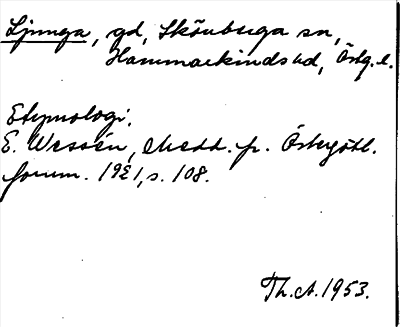 Ljunga, gd, Skönberga sn,
Hammarkinds hd, Östg.l.
Etymologi.
E. Wessén, Medd. fr. Östergötl.
fornm. 1921, s. 108.
Th.A. 1953.